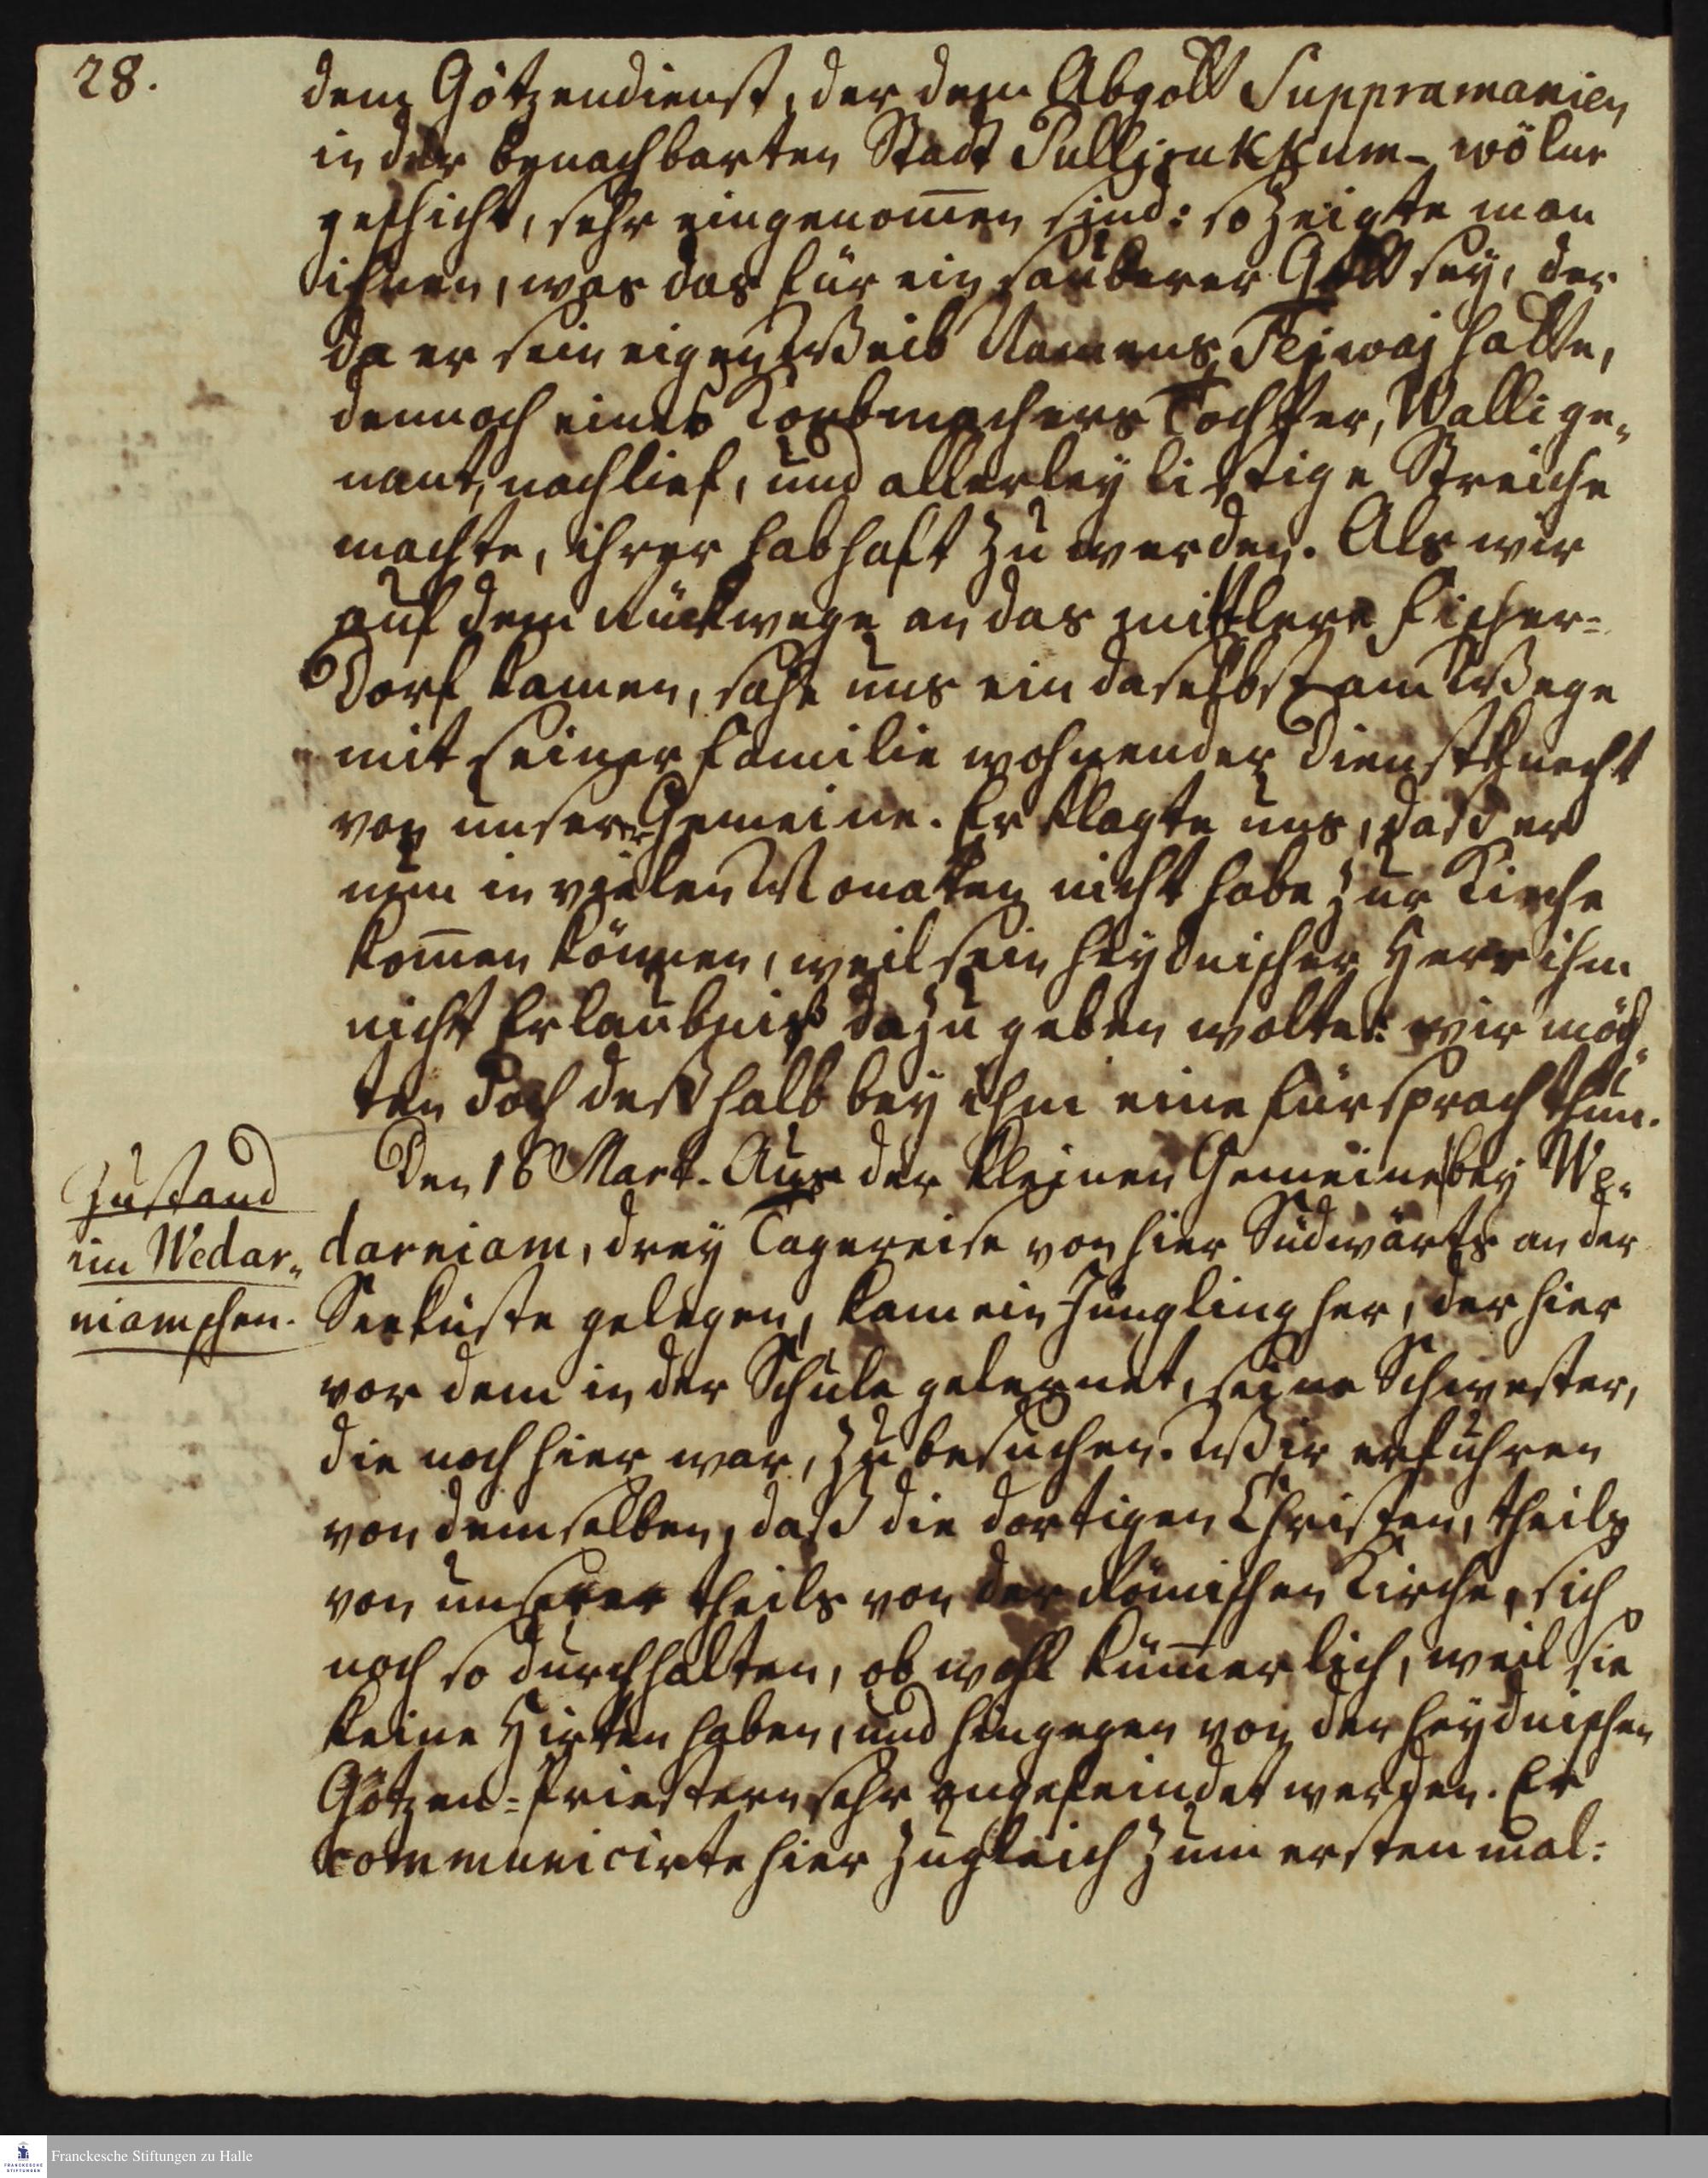 28.
dem Götzendienst, der dem Abgott Suppramanien
in der benachbarten Stadt Pullirukkum-wölur
geschicht, sehr eingenom̄en sind: so zeigte man
ihnen, was das für ein sauberer Gott sey, der
da er sein eigen Weib Namens Teiwai hatte,
dennoch eines Korbmachers Tochter, Walli ge-
nant, nachlief, und allerley listige Streiche
machte, ihrer habhaft zu werden. Als wir
auf dem Rückwege an das mittlere Fischer-
Dorf kamen, sahe uns ein daselbst am Wege
mit seiner Familie wohnender Dienstknecht
von unserer Gemeine. Er klagte uns, daß er
nun in vielen Monaten nicht habe zur Kirche
kom̄en können, weil sein heydnischer Herr ihm
nicht Erlaubniß dazu geben wolte: wir möch-
ten doch deßhalb bey ihm eine Fürsprach thun.
Zustand
im Wedar-
niamschen.
Den 16 Mart. Aus der kleinen Gemeine bey We-
darniam, drey Tagereise von hier Südwärts an der
Seeküste gelegen, kam ein Jüngling her, der hier
vor dem in der Schule gelernet, seine Schwester,
die noch hier war, zu besuchen. Wir erfuhren
von demselben, daß die dortigen Christen, theils
von unserer theils von der Römischen Kirche, sich
noch so durchhalten, ob wohl küm̄erlich, weil sie
keine Hirten haben, und hingegen von den heydnischen
Götzen-Priestern sehr angefeindet werden. Er
communicirte hier zugleich zum ersten mal:
Franckesche Stiftungen zu Halle